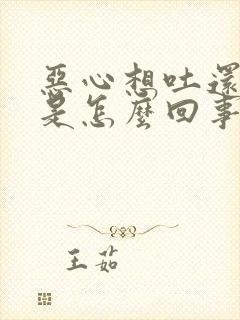 惡心想吐還
是怎麼回事
王茹